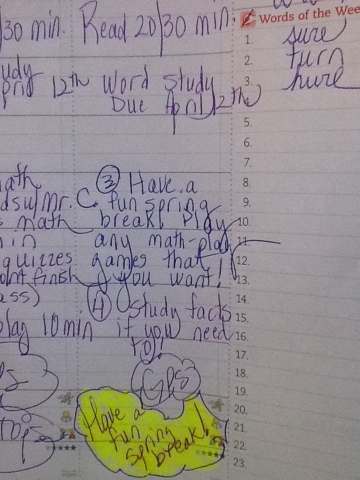 30 min. Read 20/30 min.
Words of the Wee
1. sure
2. turn
3.
12th Word Study
Due April 12th
4.
5.
6.
7.
8.
9.
10.
11.
12.
13.
14.
15.
16.
17.
18.
19.
20.
21.
22.
23.
math
Mr. C.
math
in
quizzes
finish
ass)
play 10 min
③ Have a
fun spring
break! Play
any math-play
games that
you want!
④ Study facts
if you need
to!
GPS
Have a
fun
spring
break!